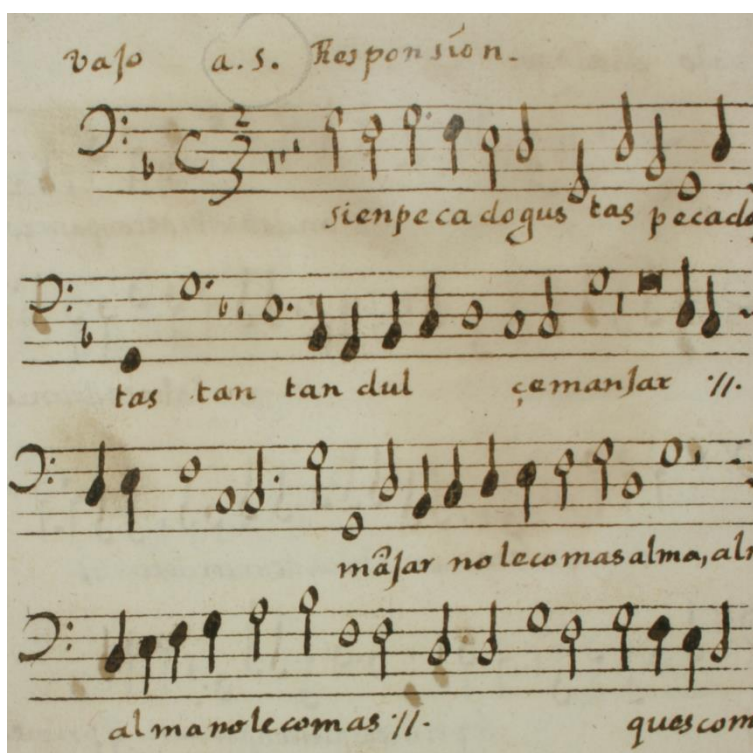 vajo a.5. Responsion.
sienpecadogus tas pecado
tas tan tan dul çemanjar ://.
mãjar nolecomasalma, alm
almanolecomas ://. quescom